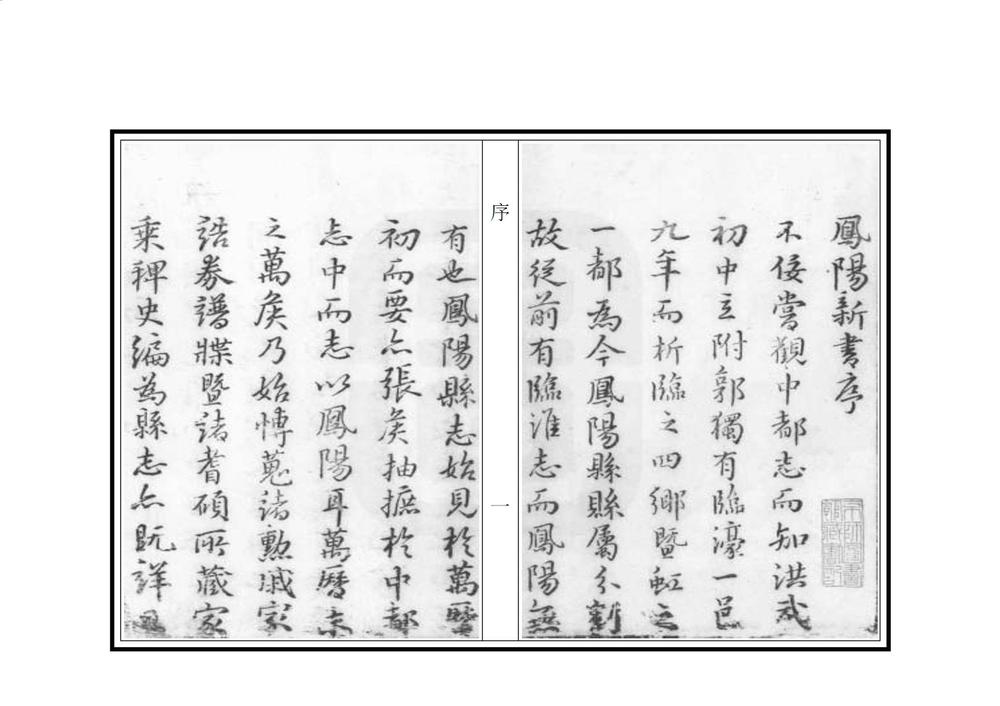 鳳陽新書序
不佞嘗觀中都志而知洪武
初中立附郭獨有臨濠一邑
九年而析臨之四鄉暨虹之
一都為今鳳陽縣縣屬分割
故從前有臨淮志而鳳陽無
序
一
有也鳳陽縣志始見於萬曆
初而要亦張矦抽摭於中都
志中而志以鳳陽耳萬曆末
之萬矦乃始博蒐諸勲戚家
誥券譜牒暨諸耆碩所藏家
乘稗史編為縣志亦既詳